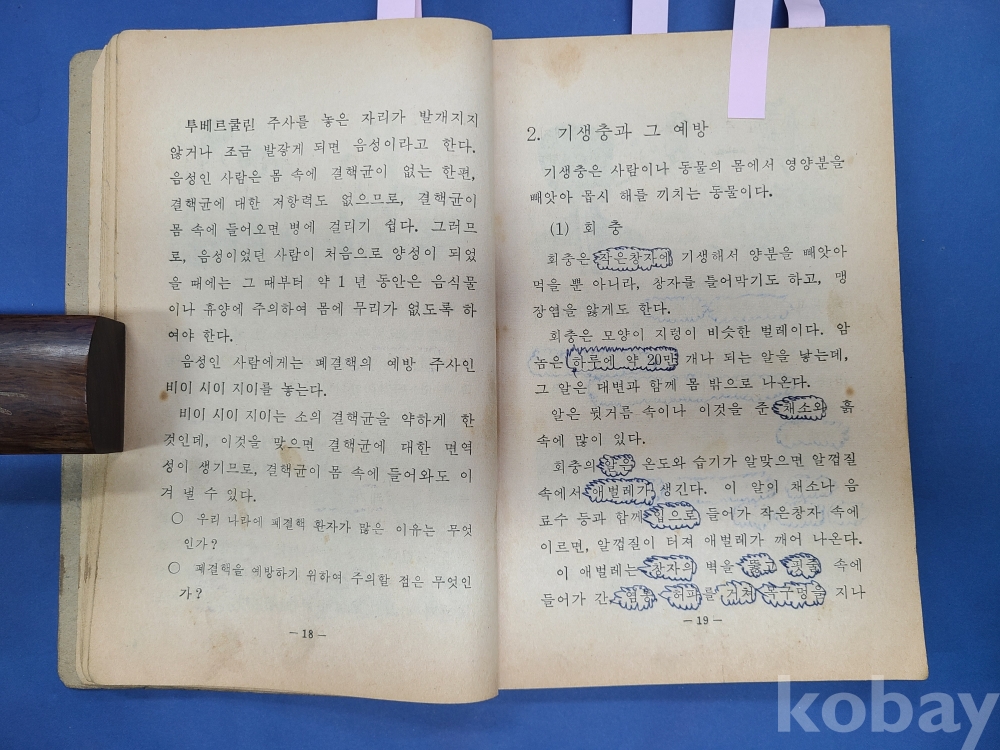 투베르쿨린 주사를 놓은 자리가 발개지지
않거나 조금 발장게 되면 음성이라고 한다.
음성인 사람은 몸 속에 결핵균이 없는 한편,
결핵균에 대한 저항력도 없으므로, 결핵균이
몸 속에 들어오면 병에 걸리기 쉽다. 그러므
로, 음성이었던 사람이 처음으로 양성이 되었
을 때에는 그 때부터 약 1 년 동안은 음식물
이나 휴양에 주의하여 몸에 무리가 없도록 하
여야 한다.
음성인 사람에게는 폐결핵의 예방 주사인
비이 시이 지이를 놓는다.
비이 시이 지이는 소의 결핵균을 약하게 한
것인데, 이것을 맞으면 결핵균에 대한 면역
성이 생기므로, 결핵균이 몸 속에 들어와도 이
겨 낼 수 있다.
○ 우리 나라에 폐결핵 환자가 많은 이유는 무엇
인가?
○ 폐결핵을 예방하기 위하여 주의할 점은 무엇인
가?
— 18 —
2. 기생충과 그 예방
기생충은 사람이나 동물의 몸에서 영양분을
빼앗아 몹시 해를 끼치는 동물이다.
(1) 회 충
회충은 작은창자에 기생해서 양분을 빼앗아
먹을 뿐 아니라, 창자를 틀어막기도 하고, 맹
장염을 앓게도 한다.
회충은 모양이 지렁이 비슷한 벌레이다. 암
놈은 하루에 약 20만 개나 되는 알을 낳는데,
그 알은 대변과 함께 몸 밖으로 나온다.
알은 뒷거름 속이나 이것을 준 채소와 흙
속에 많이 있다.
회충의 알은 온도와 습기가 알맞으면 알껍질
속에서 애벌레가 생긴다. 이 알이 채소나 음
료수 등과 함께 입으로 들어가 작은창자 속에
이르면, 알껍질이 터져 애벌레가 깨어 나온다.
이 애벌레는 창자의 벽을 뚫고 핏줄 속에
들어가 간, 염통, 허파를 거쳐 목구멍을 지나
— 19 —
kobay